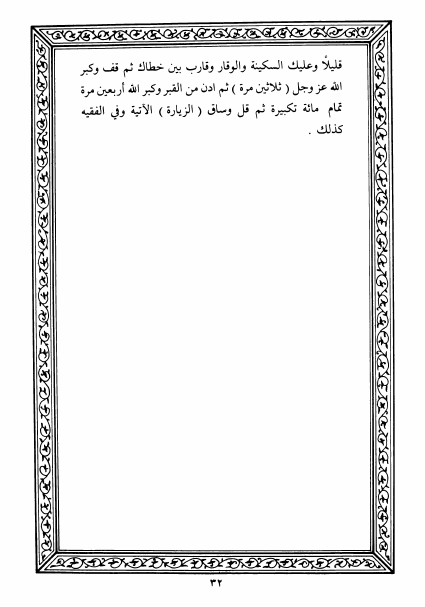 قليلاً وعليك السكينة والوقار وقارب بين خطاك ثم قف وكبر
الله عز وجل ( ثلاثين مرة ) ثم ادن من القبر وكبر الله أربعين مرة
تمام مائة تكبيرة ثم قل وساق ( الزيارة ) الآتية وفي الفقيه
كذلك .
٣٢